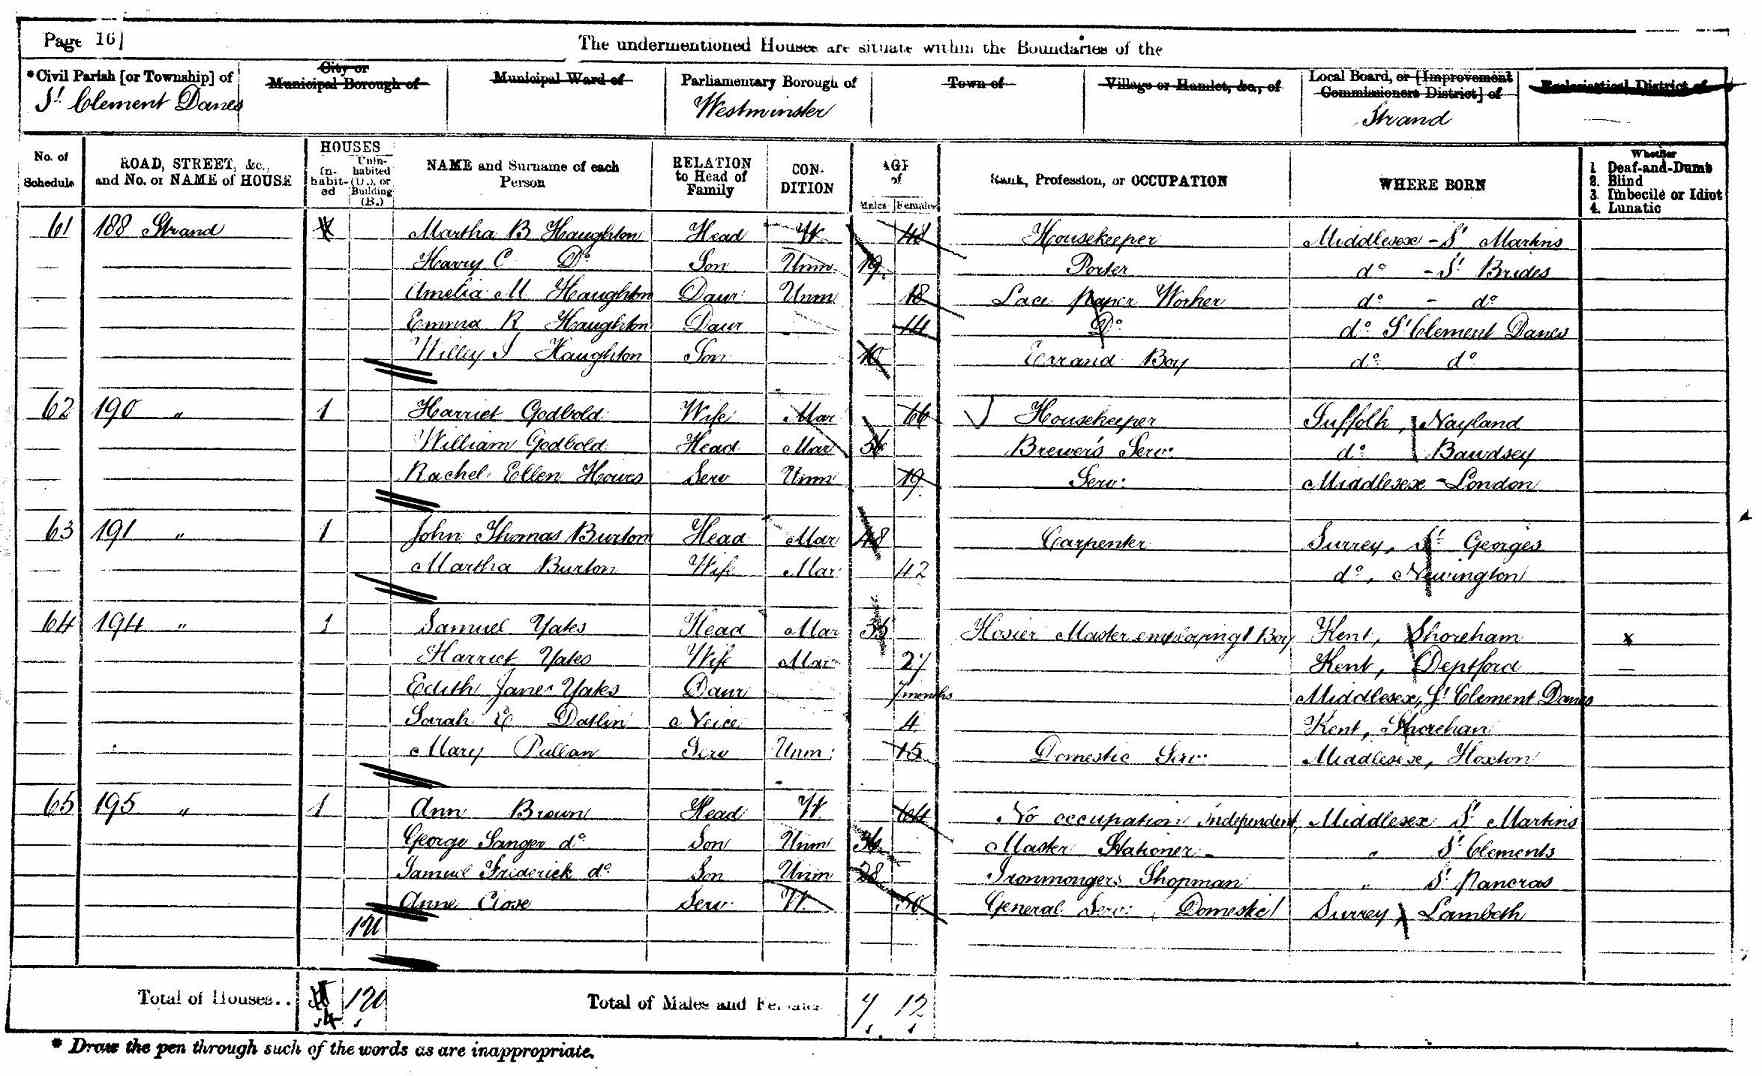 Page 16]
The undermentioned Houses are situate within the Boundaries of the
*Civil Parish [or Township] of City or Municipal Borough of Municipal Ward of Parliamentary Borough of Town of Village or Hamlet, &c., of Local Board, or [Improvement Commissioners District] of Ecclesiastical District of
St. Clement Danes Westminster Strand
No. of Schedule ROAD, STREET, &c., and No. or NAME of HOUSE HOUSES Inhabited Uninhabited (U.), or Building (B.) NAME and Surname of each Person RELATION to Head of Family CONDITION AGE of Males Females Rank, Profession, or OCCUPATION WHERE BORN Whether 1. Deaf-and-Dumb 2. Blind 3. Imbecile or Idiot 4. Lunatic
61 188 Strand Martha B Haughton Head W 48 Housekeeper Middlesex - St. Martins
Harry C Do. Son Unm 19 Porter do - St. Brides
Amelia M Haughton Daur Unm 18 Lace paper Worker do - do
Emma R Haughton Daur 14 Do. do St. Clement Danes
Willey J Haughton Son Errand Boy do do
62 190 " 1 Harriet Godbold Wife Mar 66 Housekeeper Suffolk, Nayland
William Godbold Head Mar 56 Brewer's Serv: do Bawdsey
Rachel Ellen Howes Serv Unm 19 Serv: Middlesex - London
63 191 " 1 John Thomas Burton Head Mar 48 Carpenter Surrey, St. Georges
Martha Burton Wife Mar 42 do, Newington
64 194 " 1 Samuel Yates Head Mar 35 Hosier Master employing 1 Boy Kent, Shoreham x
Harriet Yates Wife Mar 27 Kent, Deptford
Edith Jane Yates Daur 7 months Middlesex, St. Clement Danes
Sarah E Datlin Neice 4 Kent, Shoreham
Mary Pullan Serv Unm: 15 Domestic Serv: Middlesex, Hoxton
65 195 " 1 Ann Brown Head W 64 No occupation independent, Middlesex St. Martins
George Sanger do Son Unm 34 Master Stationer - " St. Clements
Samuel Friderick do Son Unm 28 Ironmongers Shopman " St. Pancras
Anne Crose Serv W 50 General Serv: Domestic Surrey, Lambeth
Total of Houses.. 4 Total of Males and Females.. 7 12
* Draw the pen through such of the words as are inappropriate.